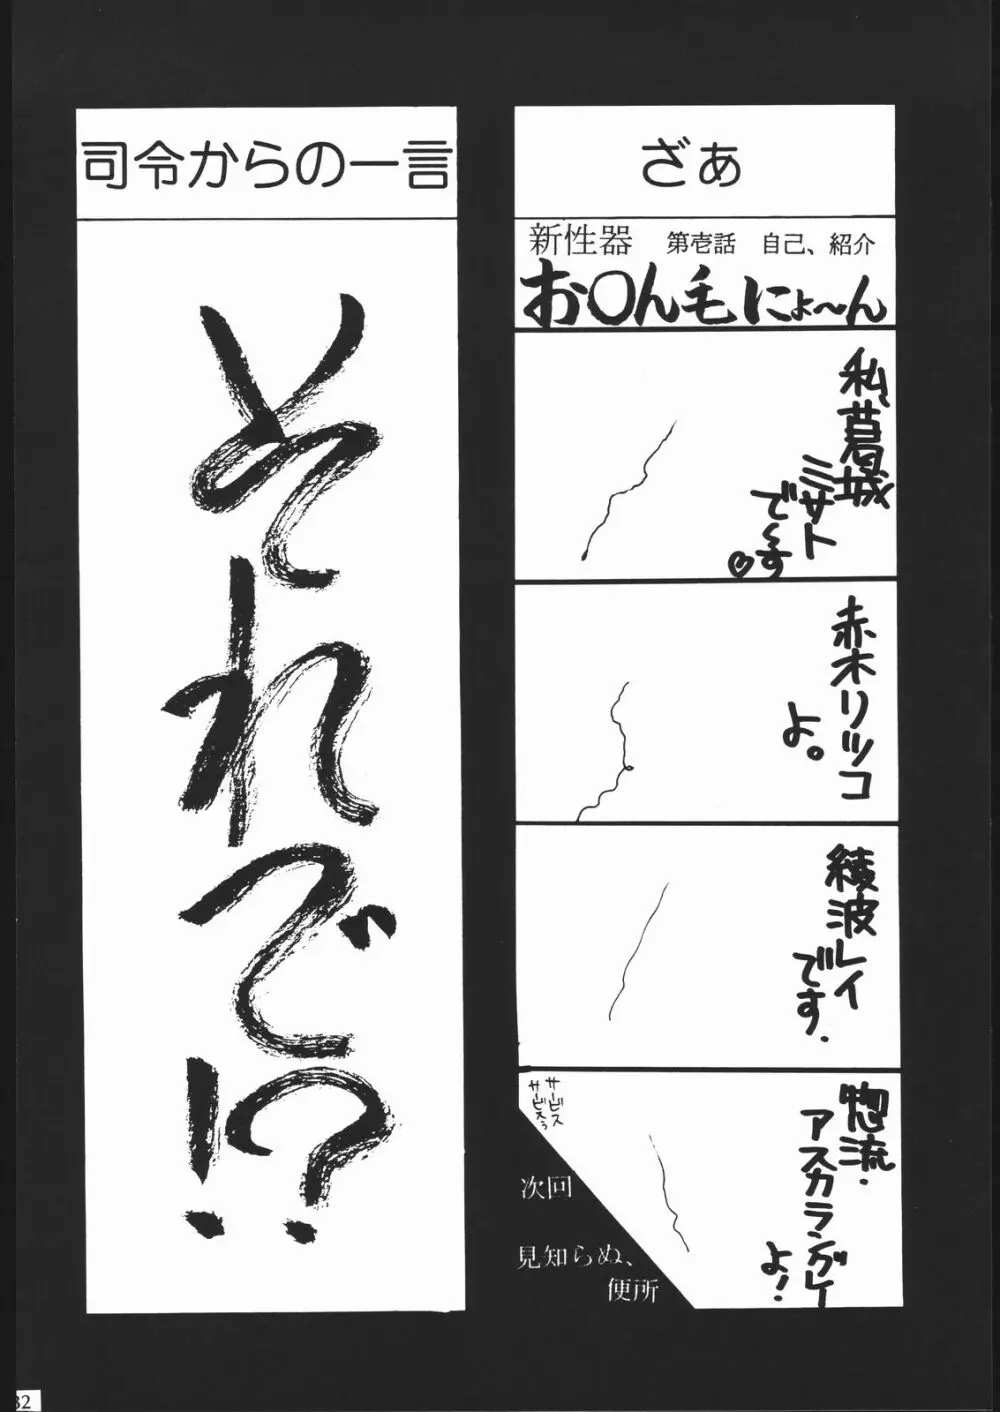 ざぁ
新性器 第壱話 自己、紹介
お○ん毛にょ〜ん
私葛城
ミサト
で〜す♡
赤木リツコ
よ。
綾波レイ
です.
惣流・
アスカラングレー
よ!
サービス
サービスぅ
次回
見知らぬ、
便所
司令からの一言
それで!?
32